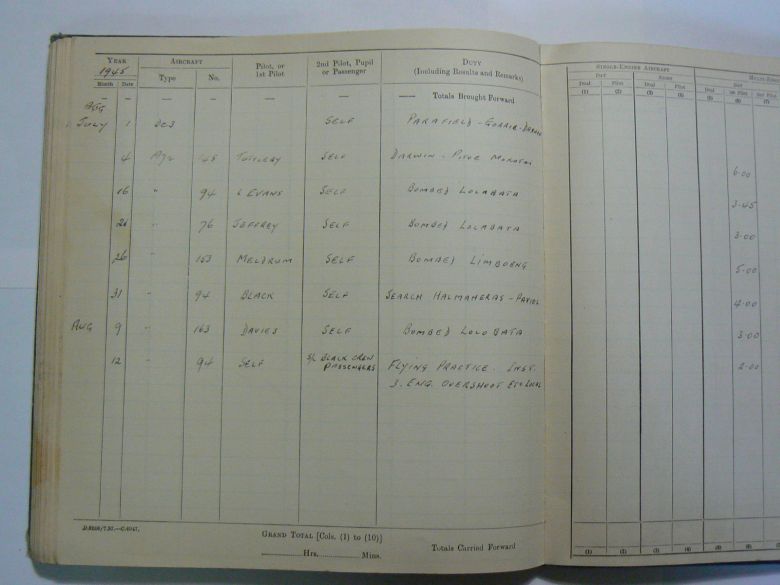 YEAR AIRCRAFT PILOT, OR 1ST PILOT 2ND PILOT, PUPIL OR PASSENGER DUTY (Including Results and Remarks) SINGLE-ENGINE AIRCRAFT
1945 Type No. DAY
Month Date Dual Pilot Dual Pilot Dual 1st Pilot 2nd Pilot
(1) (2) (3) (4) (5) (6) (7)
— — — — — — —— Totals Brought Forward
AUG
JULY 1 DC3 SELF PARAFIELD - GORRIE -
4 145 SELF DARWIN - 6.00
16 " 94 EVANS SELF BOMBED LOLABATA 3.45
21 " 76 JEFFREY SELF BOMBED LOLABATA 3.00
26 " 163 MELDRUM SELF BOMBED LIMBOENG 5.00
31 " 94 BLACK SELF SEARCH HALMAHERAS - 4.00
AUG 9 " 163 DAVIES SELF BOMBED LOLOBATA 3.00
12 " 94 SELF S/L BLACK CREW PASSENGERS FLYING PRACTICE. INST. 2.00
3. ENG. OVERSHOOT ETC LOCAL
GRAND TOTAL [Cols. (1) to (10)]
Hrs. Mins. Totals Carried Forward
(1) (2) (3) (4) (5) (6)